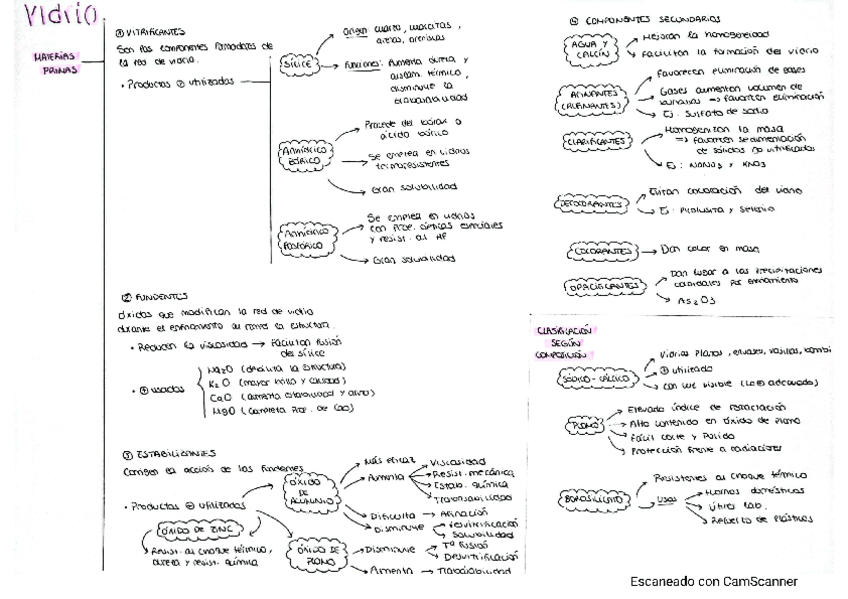 Vidrio
MATERIAS
PRIMAS
① VITRIFICANTES
Son los componentes formadores de
la red de vidrio.
• Productos ⊕ utilizados
SÍLICE
Origen: cuarzo, moscitas,
arenas, areniscas
Funciones: Aumenta dureza y
aislam. térmico,
disminuye la
ANHÍDRICO
BÓRICO
Procede del bórax o
ácido bórico
Se emplea en vidrios
termorresistentes
Gran solubilidad
ANHÍDRICO
FOSFÓRICO
Se emplea en vidrios
con prop. ópticas especiales
y resist. al HF
Gran solubilidad
② FUNDENTES
Óxidos que modifican la red de vidrio
durante el enfriamiento al romper la estructura.
• Reducen la viscosidad → Facilitan fusión
del sílice
• ⊕ usados
Na2O (debilita la estructura)
K2O (mayor brillo y calidad)
CaO (aumenta estabilidad y)
MgO (completa prop. de CaO)
③ ESTABILIZANTES
Corrigen la acción de los fundentes
• Productos ⊕ utilizados
ÓXIDO DE ZINC
Resist. al choque térmico,
dureza y resist. química
ÓXIDO
DE
ALUMINIO
Más eficaz
Aumenta
Viscosidad
Resist. mecánica
Estab. química
Trabajabilidad
Dificulta → Afinación
Disminuye
Desvitrificación
Solubilidad
ÓXIDO DE
PLOMO
Disminuye
Tª fusión
Desvitrificación
Aumenta → Trabajabilidad
④ COMPONENTES SECUNDARIOS
AGUA Y
CALCÍN
Mejoran la homogeneidad
Facilitan la formación del vidrio
AFINANTES
(AFINANTES)
Favorecen eliminación de gases
Gases aumentan volumen de
burbujas ⇒ favorecen eliminación
Ej: Sulfato de sodio
CLARIFICANTES
Homogenizan la masa
⇒ favorecen sedimentación
de sólidos no vitrificados
Ej: NaNO3 y KNO3
DECOLORANTES
Evitan coloración del vidrio
Ej: Pirolusita y Selenio
COLORANTES
Dan color en masa
OPACIFICANTES
Dan lugar a las precipitaciones
coloidales por enfriamiento
As2O3
CLASIFICACIÓN
SEGÚN
COMPOSICIÓN
SÓDICO-CÁLCICO
Vidrios planos, envases, vajillas, bombi
⊕ utilizado
PLOMO
Elevado índice de refractación
Alto contenido en óxido de plomo
Fácil corte y pulido
Protección frente a radiaciones
BOROSILICATO
Resistentes al choque térmico
Usos
Hornos domésticos
Vidrio lab.
Refuerzo de plásticos
Escaneado con CamScanner